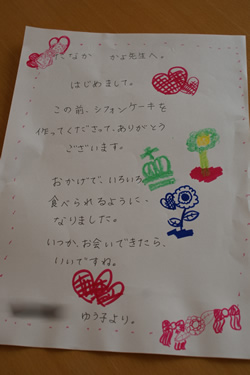 たなか かよ先生へ。
はじめまして。
この前、シフォンケーキを
作ってくださって、ありがとう
ございます。
おかげで、いろいろ
食べられるように、
なりました。
いつか、お会いできたら、
いいですね。
ゆう子より。